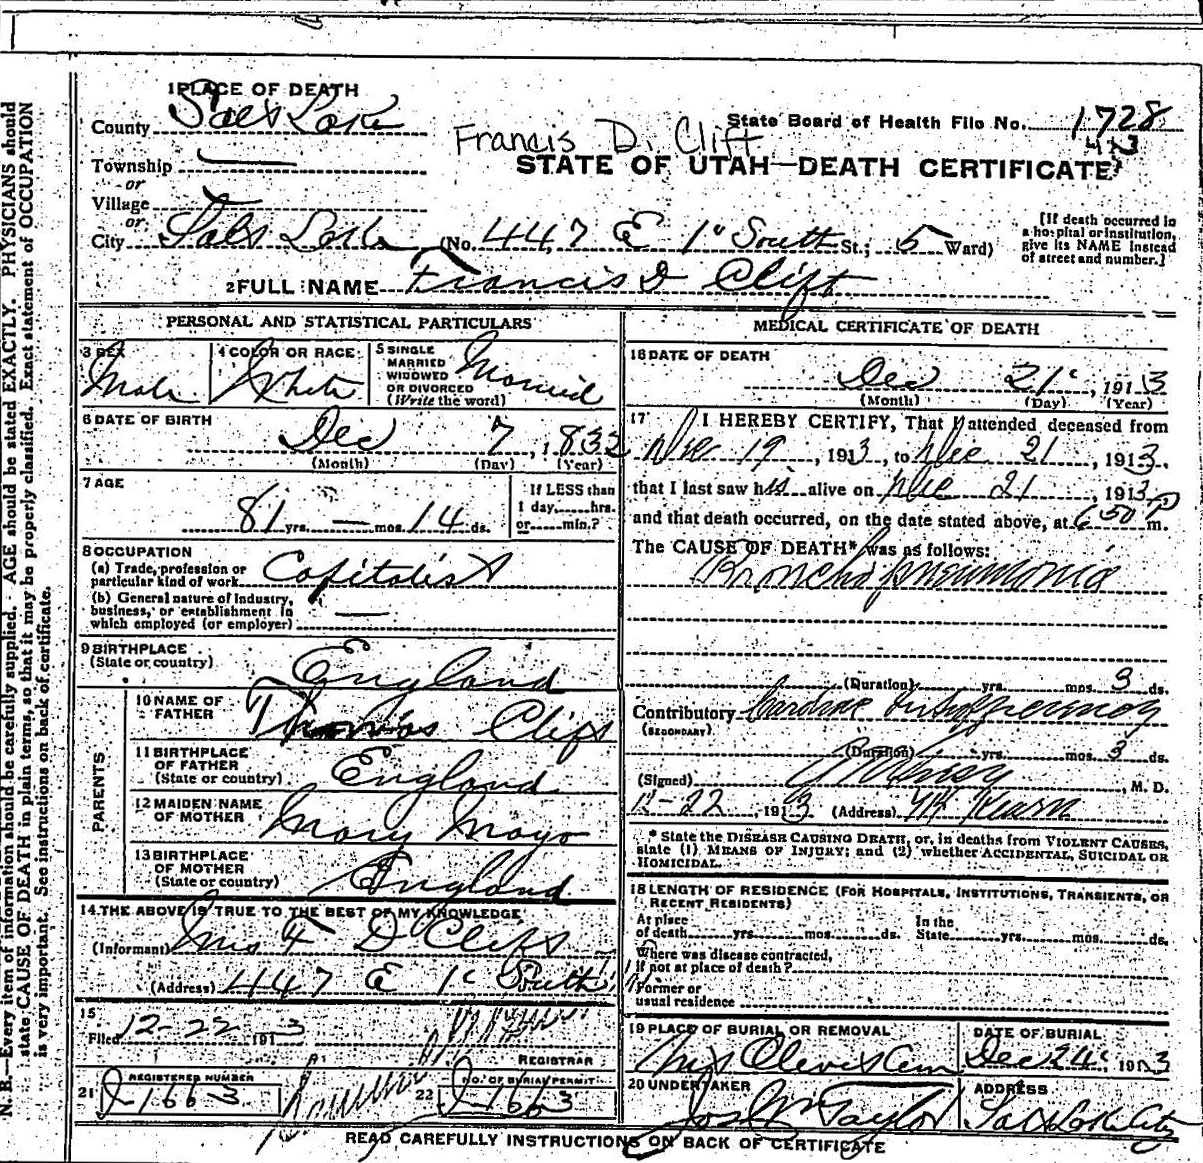 1 PLACE OF DEATH
County Salt Lake
State Board of Health File No. 1728
Francis D. Clift
413
Township
or
STATE OF UTAH—DEATH CERTIFICATE
Village
or
City Salt Lake (No. 447 E 1" South St.; 5 Ward)
[If death occurred in
a hospital or institution,
give its NAME instead
of street and number.]
2 FULL NAME Francis D Clift
PERSONAL AND STATISTICAL PARTICULARS
3 SEX
Male
4 COLOR OR RACE
White
5 SINGLE
MARRIED
WIDOWED
OR DIVORCED
(Write the word)
Married
6 DATE OF BIRTH
Dec 7, 1832
(Month) (Day) (Year)
7 AGE
81 yrs. — mos. 14 ds.
If LESS than
1 day, hrs.
or min.?
8 OCCUPATION
(a) Trade, profession or
particular kind of work Capitalist
(b) General nature of industry,
business, or establishment in
which employed (or employer)
9 BIRTHPLACE
(State or country) England
PARENTS
10 NAME OF
FATHER Thomas Clift
11 BIRTHPLACE
OF FATHER
(State or country) England
12 MAIDEN NAME
OF MOTHER Mary Mayo
13 BIRTHPLACE
OF MOTHER
(State or country) England
14 THE ABOVE IS TRUE TO THE BEST OF MY KNOWLEDGE
(Informant) Mrs F D Clift
(Address) 447 E 1" South
15
Filed 12-22 1913
REGISTRAR
21 REGISTERED NUMBER
J-1663
22 NO. OF BURIAL PERMIT
J-1663
MEDICAL CERTIFICATE OF DEATH
16 DATE OF DEATH
Dec 21", 1913
(Month) (Day) (Year)
17 I HEREBY CERTIFY, That I attended deceased from
Dec 19, 1913, to Dec 21, 1913.
that I last saw his alive on Dec 21, 1913
and that death occurred, on the date stated above, at 6 50 P m.
The CAUSE OF DEATH* was as follows:
Broncho pneumonia
(Duration) yrs. mos. 3 ds.
Contributory Cardiac Insufficiency
(SECONDARY)
(Duration) yrs. mos. 3 ds.
(Signed) M. D.
12-22, 1913 (Address) Kearn
* State the DISEASE CAUSING DEATH, or, in deaths from VIOLENT CAUSES,
state (1) MEANS OF INJURY; and (2) whether ACCIDENTAL, SUICIDAL OR
HOMICIDAL.
18 LENGTH OF RESIDENCE (FOR HOSPITALS, INSTITUTIONS, TRANSIENTS, OR
RECENT RESIDENTS)
At place
of death yrs. mos. ds.
In the
State yrs. mos. ds.
Where was disease contracted,
if not at place of death?
Former or
usual residence
19 PLACE OF BURIAL OR REMOVAL
Mt Olivet Cem
DATE OF BURIAL
Dec 24", 1913
20 UNDERTAKER
Jos Wm Taylor
ADDRESS
Salt Lake City
READ CAREFULLY INSTRUCTIONS ON BACK OF CERTIFICATE
N. B.—Every item of information should be carefully supplied. AGE should be stated EXACTLY. PHYSICIANS should
state CAUSE OF DEATH in plain terms, so that it may be properly classified. Exact statement of OCCUPATION
is very important. See instructions on back of certificate.